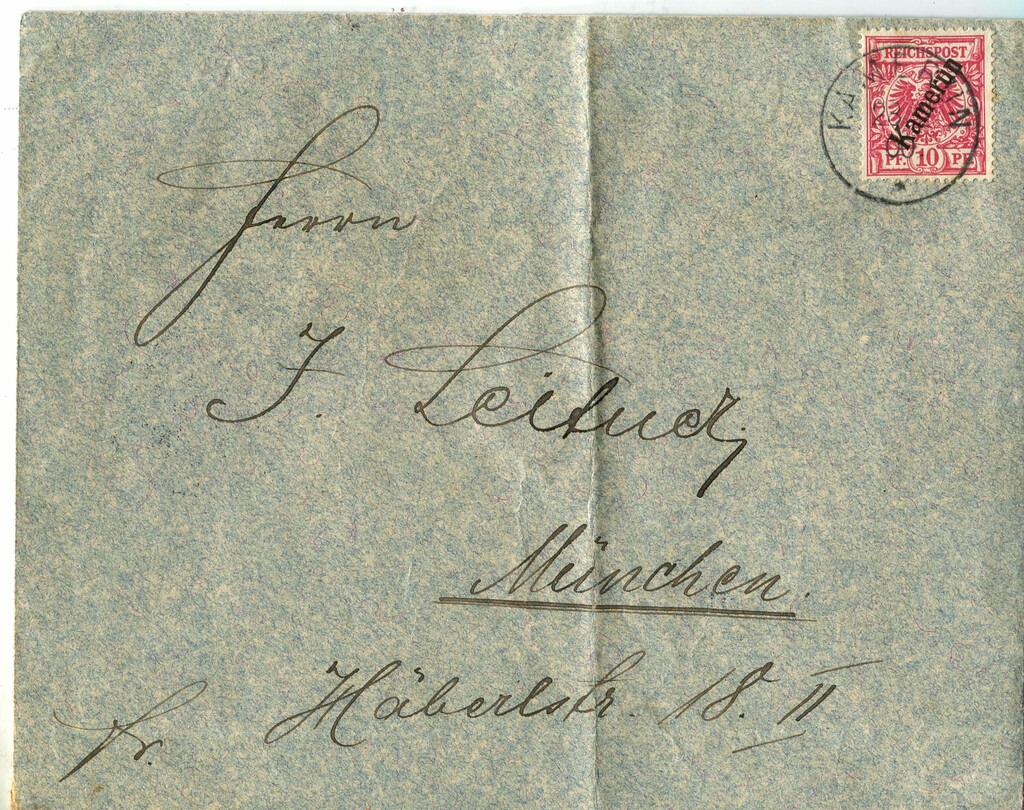 REICHSPOST
Kamerun
PF. 10 PF.
KAMERUN
Herrn
J. Leitner,
München.
Häberlstr. 18. II
fr.